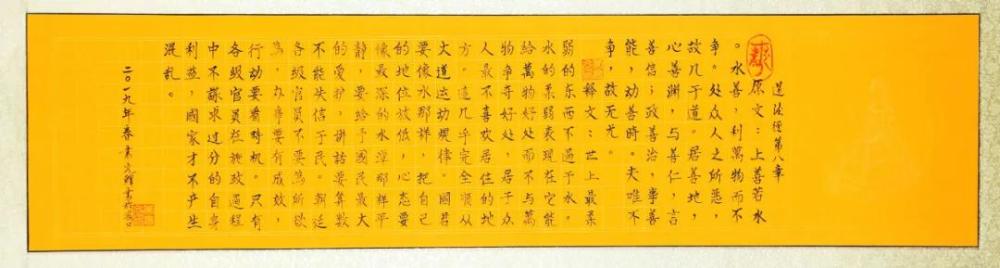 道德經第八章
原文:上善若水
。水善,利萬物而不
争。处众人之所恶,
故几于道。居善地,
心善渊,与善仁,言
善信;政善治,事善
能,动善时。夫唯不
争,故无尤。
释文:世上最柔
弱的东西不過于水。
水的柔弱表現在它能
给萬物好处而不与萬
物争夺好处,居于众
人最不喜欢居住的地
方。這几乎完全順从
大道运动規律。國君
要像水那样,把自己
的地位放低,心态要
像最深的水潭那样平
静,要给予國民最大
的爱护,讲話要算数
不能失信于民。朝廷
各级官員不要萬所欲
為,办事要有成效,
行动要看时机。只有
各级官員在施政過程
中不謀求过分的自身
利益,國家才不产生
混乱。
二〇一九年春